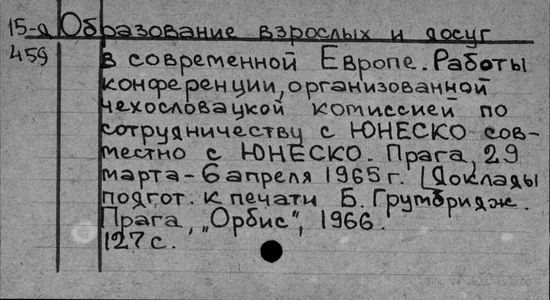 15-д Образование взрослых и досуг
459 в современной Европе. Работы
конференции, организованной
чехословацкой комиссией по
сотрудничеству с ЮНЕСКО сов-
местно с ЮНЕСКО. Прага, 29
марта - 6 апреля 1965 г. [Доклады
подгот. к печати Б. Грумбридж.
Прага, „Орбис“, 1966.
127 с.